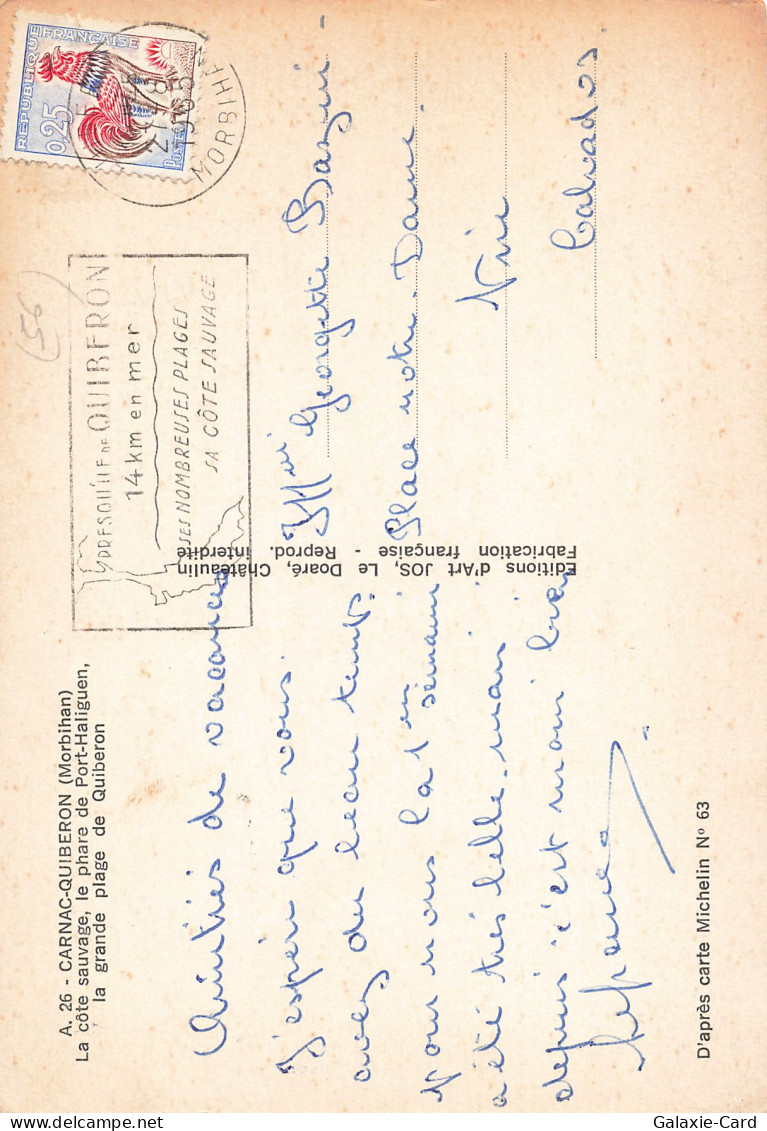 A. 26 - CARNAC-QUIBERON (Morbihan)
La côte sauvage, le phare de Port-Haliguen,
la grande plage de Quiberon
Amitiés de vacances
J'espère que vous
avez du beau temps.
Nous nous la 1ère semaine
a été très belle. mais
depuis c'est moins bien
D'après carte Michelin N° 63
Editions d'Art JOS, Le Doaré, Châteaulin
Fabrication française - Reprod. interdite
REPUBLIQUE FRANÇAISE
0,25
POSTES
1965
MORBIHAN
PRESQU'ILE DE QUIBERON
14 km en mer
SES NOMBREUSES PLAGES
SA CÔTE SAUVAGE
(56)
Georgette
Place Notre-Dame
Vire
Calvados
Galaxie-Card